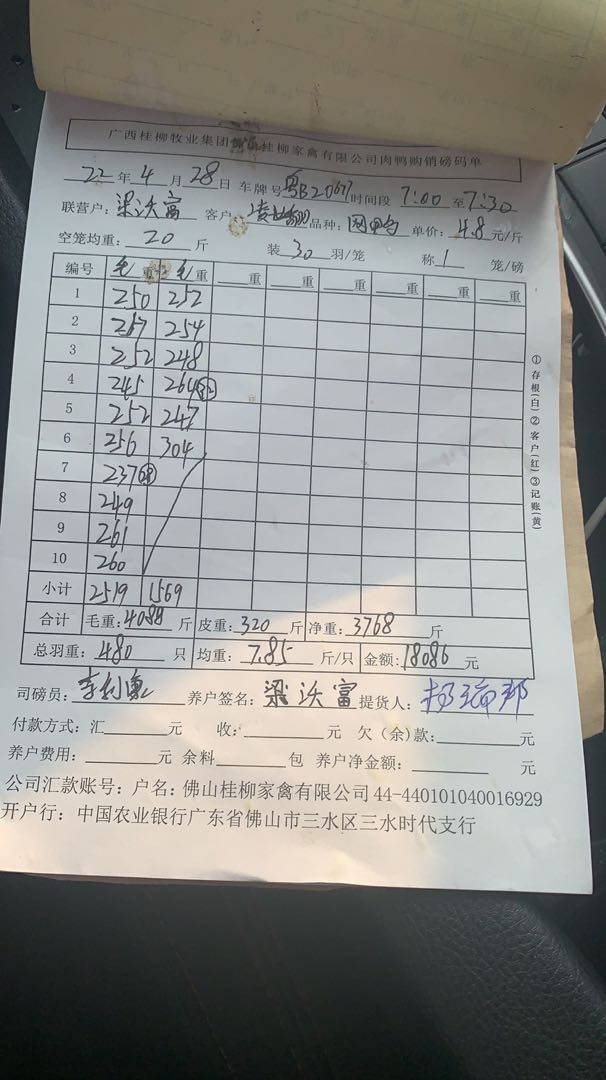 广西桂柳牧业集团佛山桂柳家禽有限公司肉鸭购销磅码单
22年4月28日 车牌号 B20677 时间段 7:00 至 7:30
联营户: 梁沃富 客户: 品种: 单价: 4.8 元/斤
空笼均重: 20 斤 装 30 羽/笼 称 1 笼/磅
编号 毛重 毛重 重 重 重 重 重 重
1 250 252
2 257 254
3 252 248
4 245 264
5 252 247
6 256 304
7 237
8 249
9 261
10 260
小计 2519 1569
合计 毛重: 4088 斤 皮重: 320 斤 净重: 3768 斤
总羽重: 480 只 均重: 7.85 斤/只 金额: 18086 元
司磅员: 养户签名: 梁沃富 提货人:
付款方式: 汇 元 收: 元 欠(余)款: 元
养户费用: 元 余料 包 养户净金额: 元
公司汇款账号: 户名: 佛山桂柳家禽有限公司 44-440101040016929
开户行: 中国农业银行广东省佛山市三水区三水时代支行
①存根(白)②客户(红)③记账(黄)